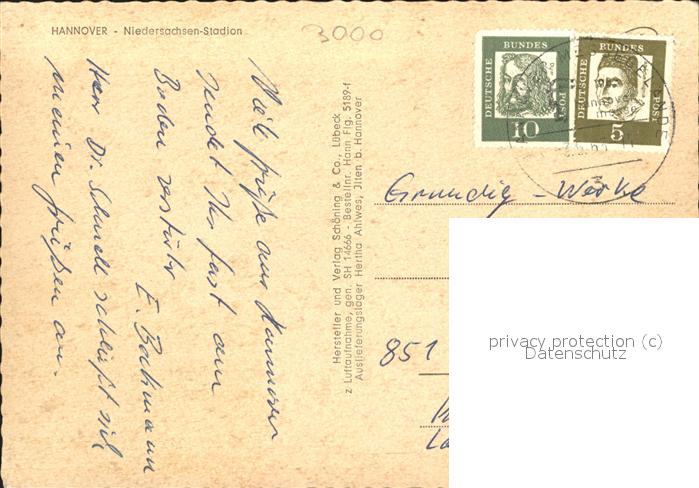 HANNOVER - Niedersachsen-Stadion
3000
Viele Grüße aus Hannover
sendet Ihr fast am
Boden zerstörter
E. Bachmann
Herr Dr. Schnell schließt sich
meinen Grüßen an.
Hersteller und Verlag Schöning & Co., Lübeck
z. Luftaufnahme, gen. SH 14666 - Bestellnr. Hann. Flg. 5189-f
Auslieferungslager Hertha Ahlwes, Ilten b. Hannover
DEUTSCHE BUNDESPOST
10
DEUTSCHE BUNDESPOST
5
Grundig-Werke
851
privacy protection (c)
Datenschutz